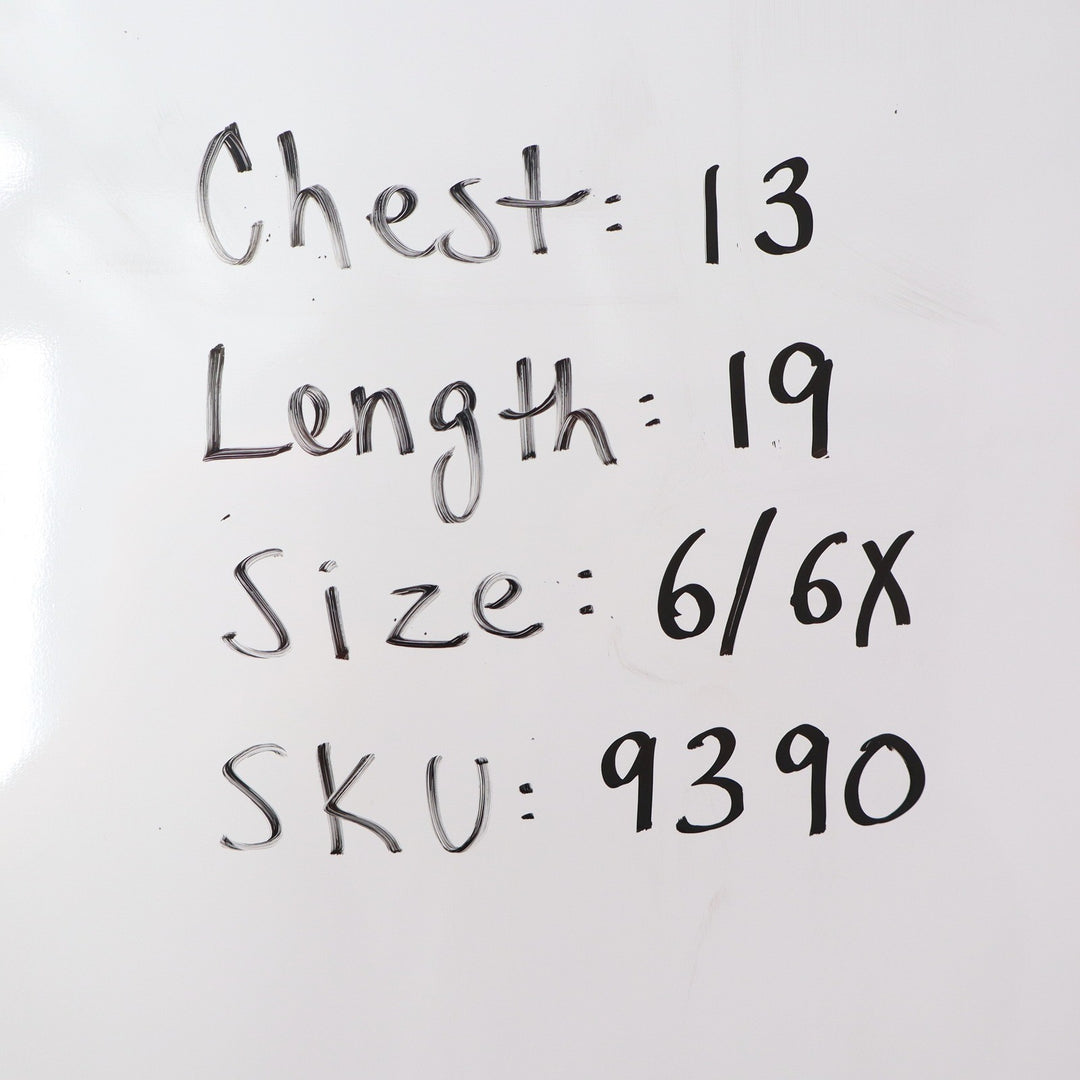 Chest: 13
Length: 19
Size: 6/6X
SKU: 9390